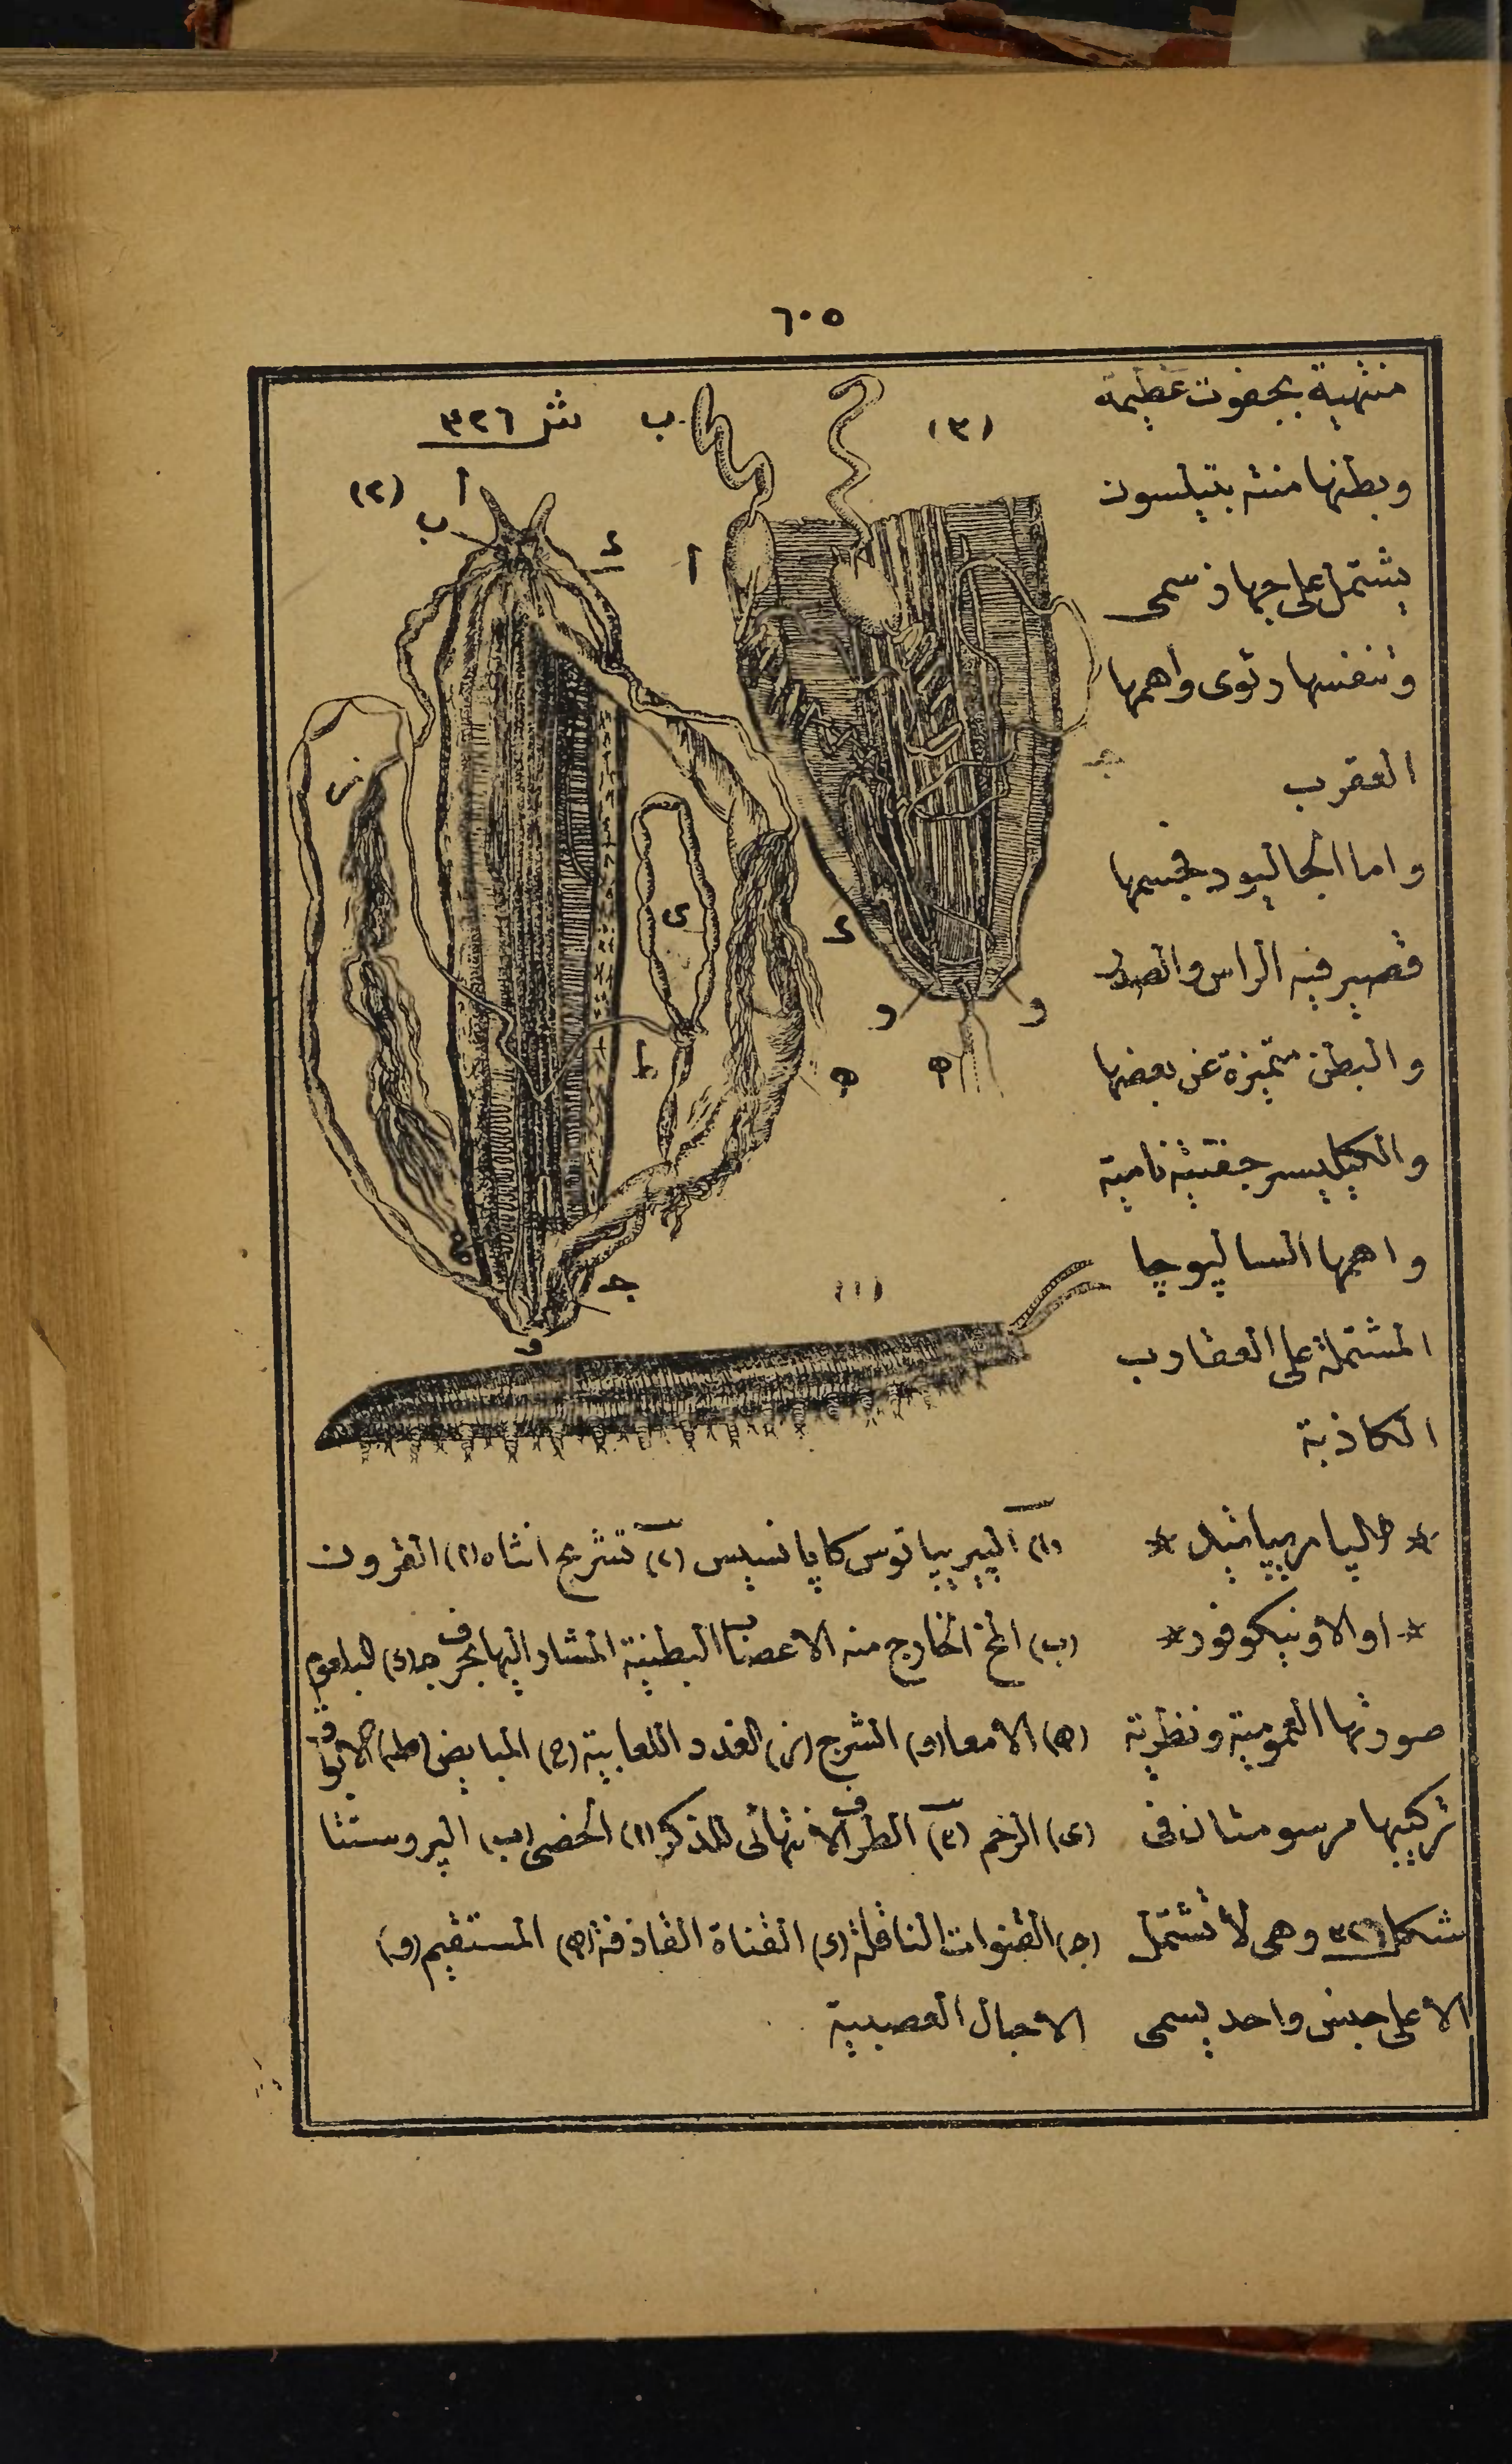 ٦٠٥
منتهية بجفوت عظيمة
وبطنها منته بتيلسون
يشتمل على جهاز سمى
وتنفسها رئوى واهمها
العقرب
واما الجاليود فجسمها
قصير فيه الراس والصدر
والبطن متميزة عن بعضها
والكيليسر جفتيه نامية
واهمها الساليوجا
المشتملة على العقارب
الكاذبة
* اوالاونيكوفور *
صورتها العمومية ونظرية
تركيبها مرسومتان فى
شكل ٣٢٦ وهى لا تشتمل
الا على جنس واحد يسمى
ش ٣٢٦
(٣)
ب
أ
جـ
د
و
و
ه
(٢)
أ
ب
د
ز
ى
ط
ه
ح
جـ
و
(١)
(١) الپيريپاتوس كاپانسيس (٢) تشريح انثاه (ا) القرون
(ب) المخ الخارج منه الاعصاب البطنية المشار اليها بحرف جـ (د) البلعوم
(ه) الامعا (و) الشرج (ز) الغدد اللعابية (ح) المبايض (ط) الابواق
(ى) الرحم (٣) الطرف الانتهائى للذكر (ا) الخصى (ب) الپروستتا
(جـ) القنوات الناقلة (د) القناة القاذفة (ه) المستقيم (و)
الاحبال العصبية